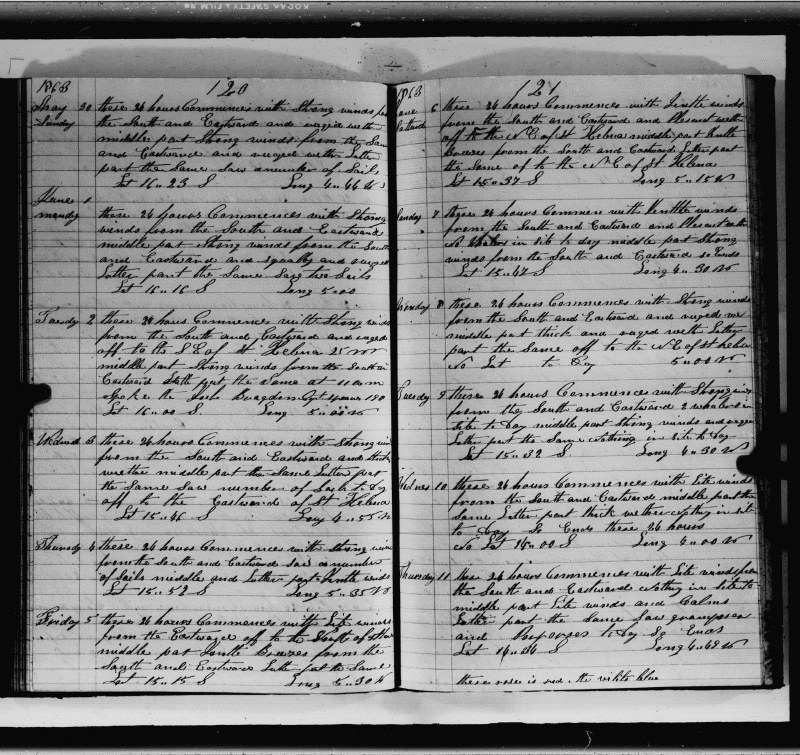 KODAK SAFETY FILM
1868
120
May 30 these 24 hours Commences with Strong winds from
Sunday the South and Eastward and ruged weth
middle part Strong winds from the South
and Eastward and ruged wether Latter
part the Same Saw a number of Sails
Lat 16 .. 23 S Long 4 .. 44 W
June 1
monday these 24 hours Commences with Strong
winds from the South and Eastward
middle part Strong winds from the South
and Eastward and squally and ruged
Latter part the Same Saw two Sails
Lat 16 .. 16 S Long 5 .. 00
Tuesdy 2 these 24 hours Commences with Strong winds
from the South and Eastward and ruged
off to the S E of St Helena 25
middle part Strong winds from the South
Eastward Latte part the Same at 11 am
Spoke the
Lat 16 .. 00 S Long 5 .. 00 W
Wednsd 3 these 24 hours Commences with Strong win
from the South and Eastward and thick
wether middle part the Same Latter part
the Same Saw number of Sails to Dy
off to the Eastward of St Helena
Lat 15 .. 46 S Long 4 .. 55 W
Thursdy 4 these 24 hours Commences with Strong winds
from the South and Eastward Saw a number
of Sails middle and Latter part Gentle winds
Lat 15 .. 52 S Long 5 .. 35 W
Friday 5 these 24 hours Commences with Lite winds
from the Eastward off to the South of St
middle part Gentle Breezes from the
South and Eastward Latter part the Same
Lat 15 .. 15 S Long 5 .. 30 W
1868
121
June 6 these 24 hours Commences with Gentle winds
from the South and Eastward and Plesant weth
off to the N E of St Helena middle part Gentle
Breezes from the South and Eastward Latter part
the Same of to the N E of St Helena
Lat 15 .. 37 S Long 5 .. 15 W
Sunday 7 these 24 hours Commenc with Genttle winds
from the South and Eastward and Plesant weth
No Whales in Site to day middle part Strong
winds from the South and Eastward So Ends
Lat 15 .. 47 S Long 4 .. 30 W
Monday 8 these 24 hours Commences with Strong winds
from the South and Eastward and ruged we
middle part thick and ruged weth Latter
part the Same off to the N E of St helena
No Lat to Dy 5 .. 00 W
Tuesdy 9 these 24 hours Commences with Strong winds
from the South and Eastward 2 whalers in
Site to Day middle part Strong winds and ruged
Latter part the Same Nothing in Site to Day
Lat 15 .. 32 S Long 4 .. 30 W
Wednes 10 these 24 hours Commences with Lite winds
from the South and Eastward middle part the
Same Latter part thick wether Nothing in Sit
to Day So Ends these 24 hours
No Lat 14 .. 00 S Long 4 .. 00 W
Thursday 11 these 24 hours Commences with Lite winds from
the South and Eastward Nothing in Site to
middle part Lite winds and Calms
Latter part the Same Saw grampses
and porposes to Dy So Ends
Lat 14 .. 34 S Long 4 .. 42 W
these rose is red . the vilits blue